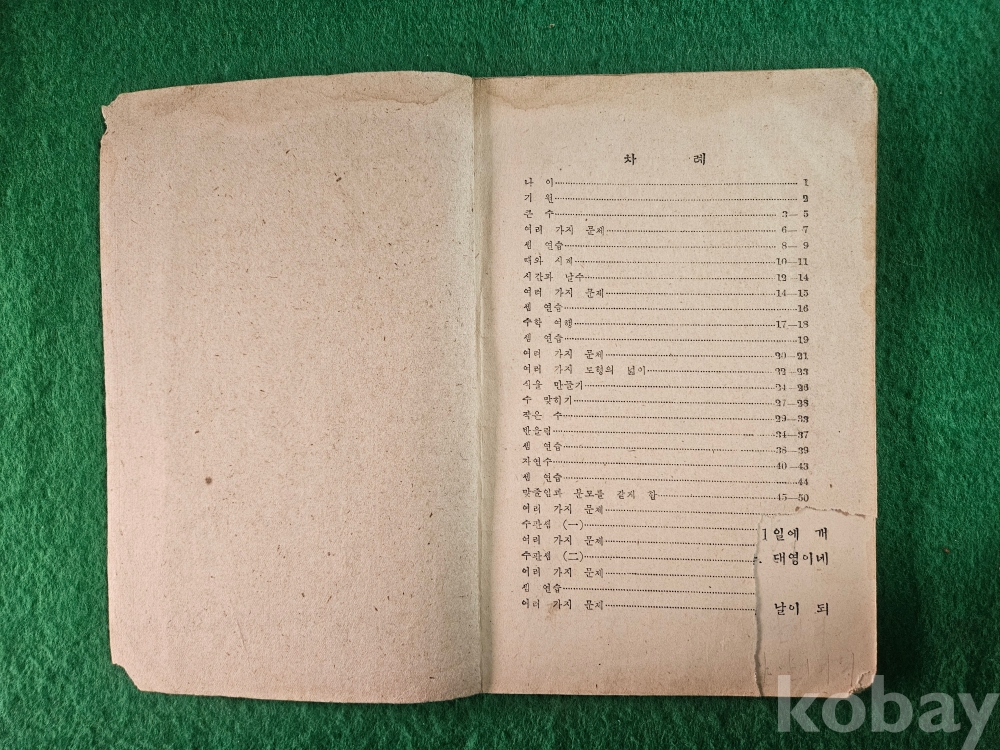 차 례
나 이 1
기 원 2
큰 수 3—5
여러 가지 문제 6—7
셈 연습 8—9
때와 시계 10—11
시간과 날수 12—14
여러 가지 문제 14—15
셈 연습 16
수학 여행 17—18
셈 연습 19
여러 가지 문제 20—21
여러 가지 도형의 넓이 22—23
식을 만들기 24—26
수 맞히기 27—28
작은 수 29—33
반올림 34—37
셈 연습 38—39
자연수 40—43
셈 연습 44
맞줄임과 분모를 같게 함 45—50
여러 가지 문제
수관셈 (一)
1일에 개
여러 가지 문제
수관셈 (二)
. 태영이네
여러 가지 문제
셈 연습
여러 가지 문제
날이 되
kobay